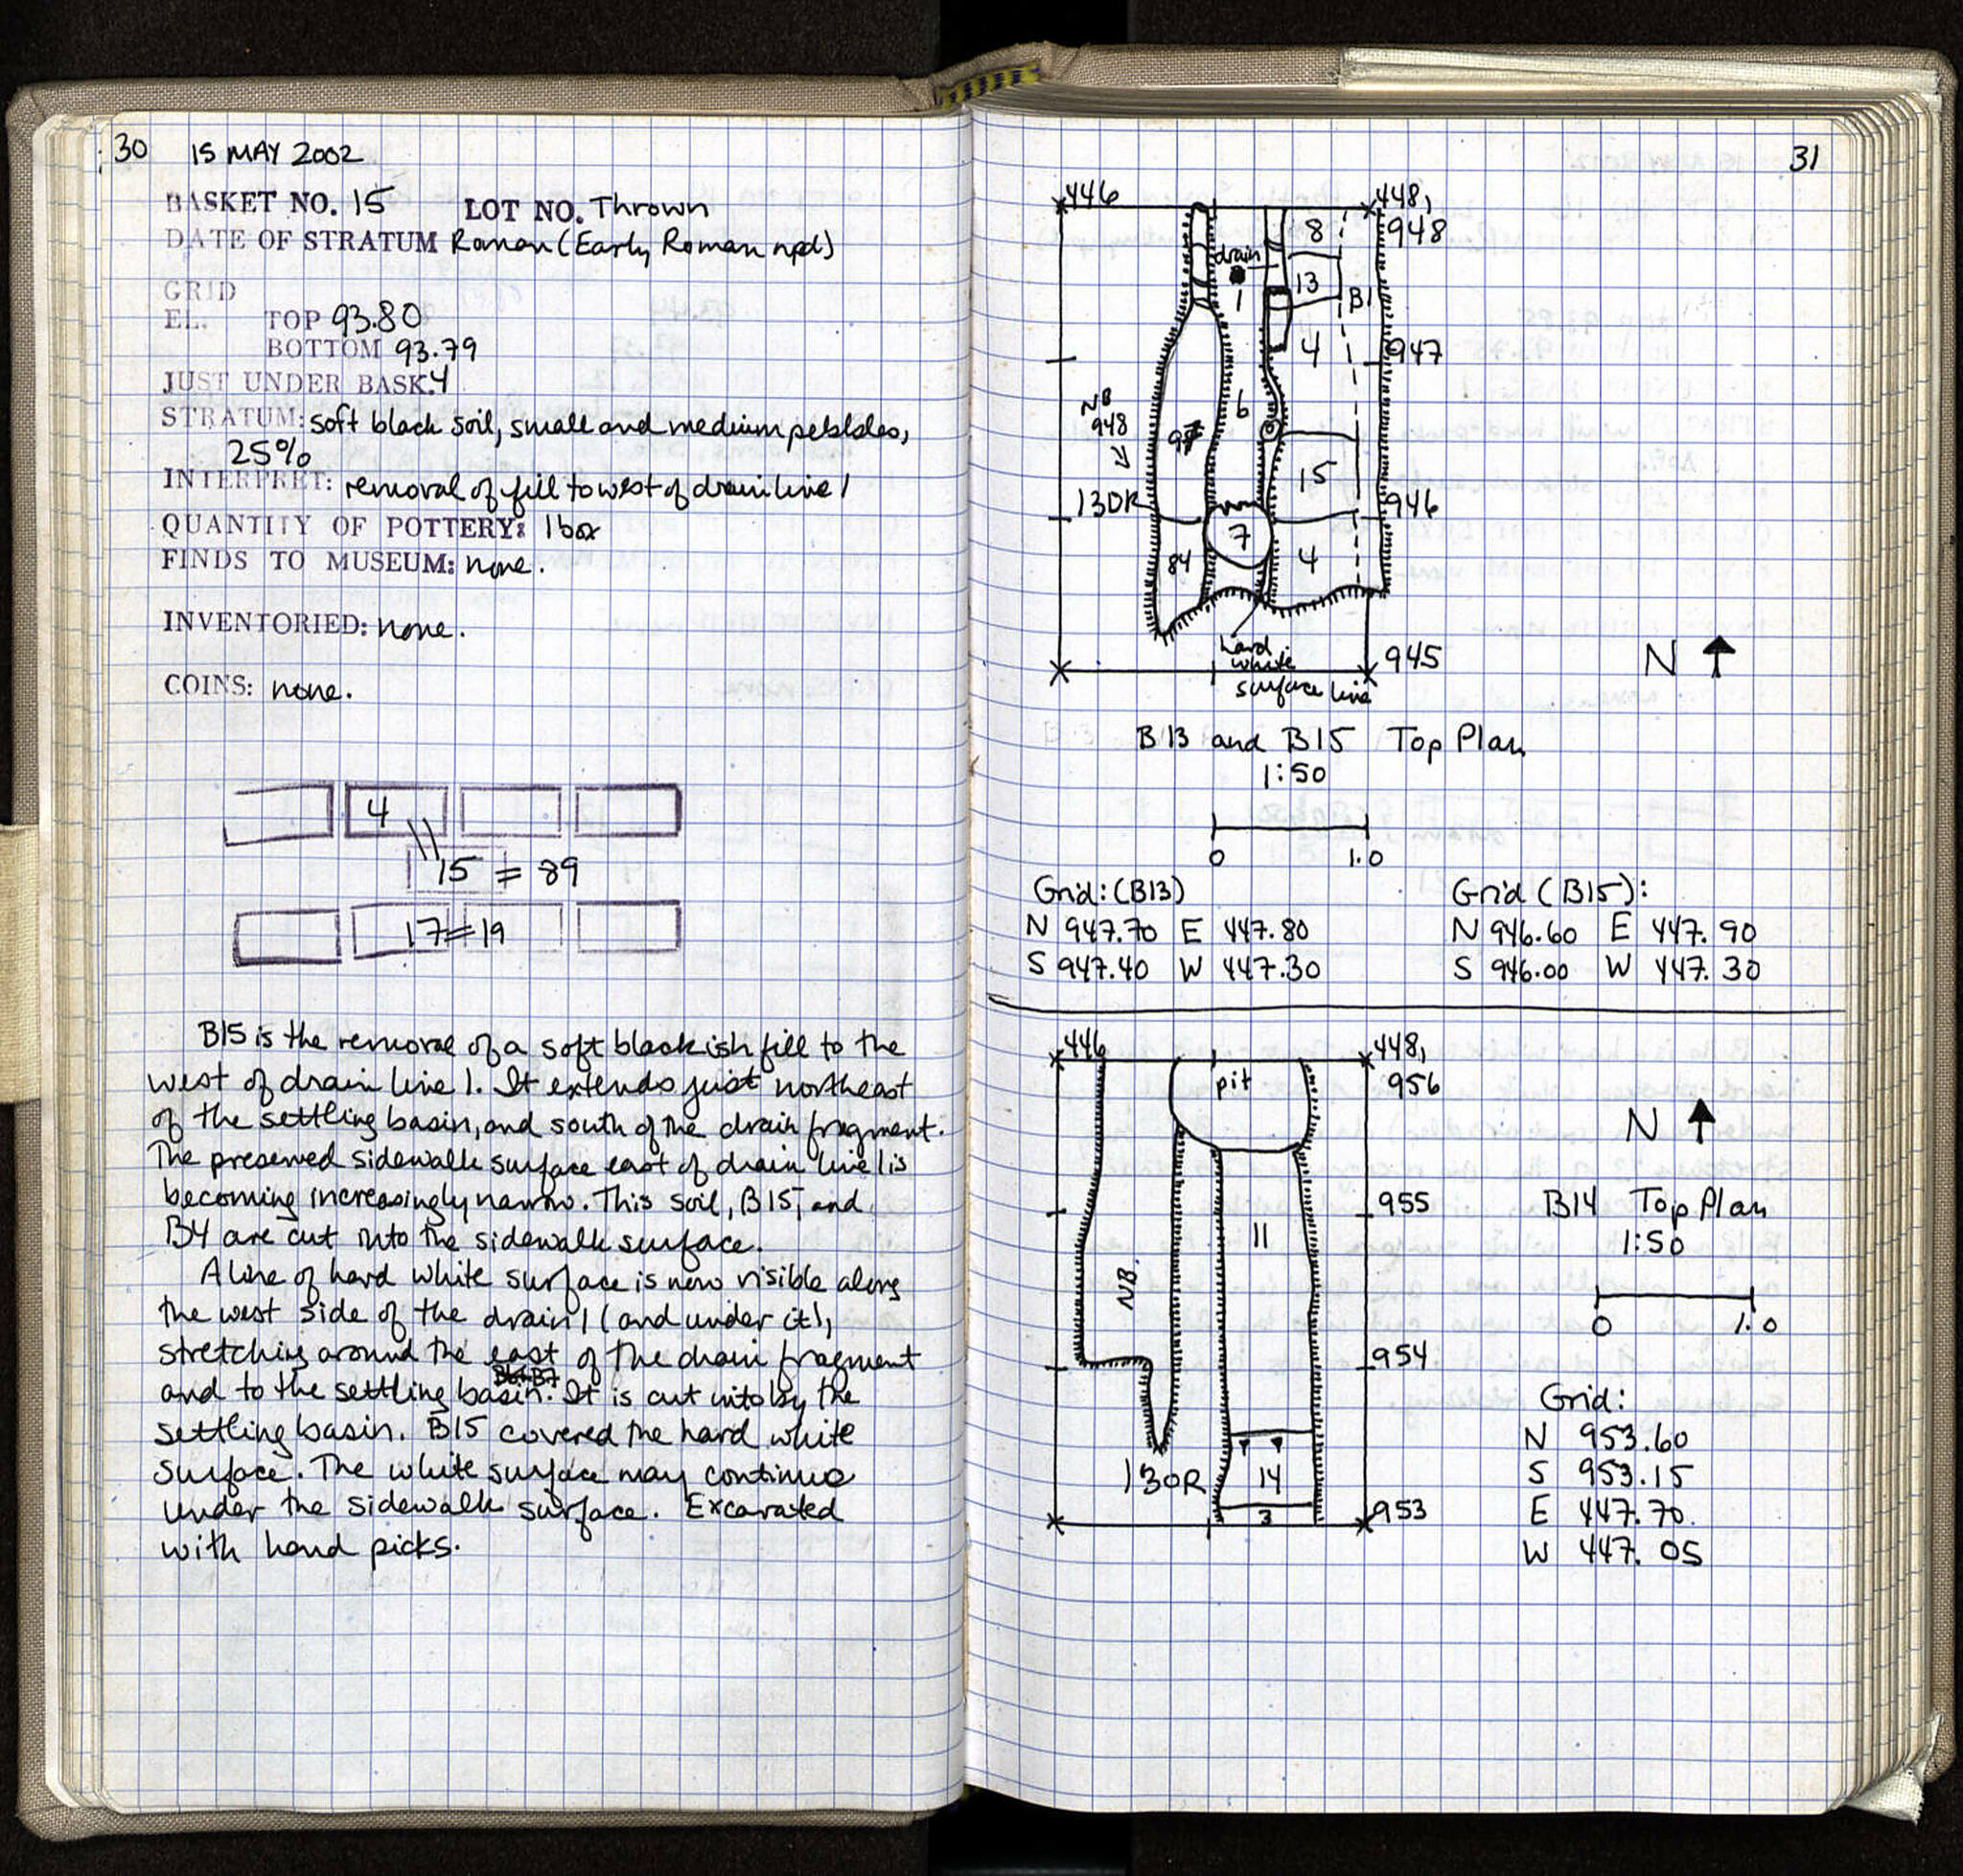 30 15 MAY 2002
BASKET NO. 15 LOT NO. Thrown
DATE OF STRATUM Roman (Early Roman npd)
GRID
EL. TOP 93.80
BOTTOM 93.79
JUST UNDER BASK. 4
STRATUM: soft black soil, small and medium pebbles,
25%
INTERPRET: removal of fill to west of drain line 1
QUANTITY OF POTTERY: 1 box
FINDS TO MUSEUM: none.
INVENTORIED: none.
COINS: none.
4
15 = 89
17 = 19
B15 is the removal of a soft blackish fill to the
west of drain line 1. It extends just northeast
of the settling basin, and south of the drain fragment.
The preserved sidewalk surface east of drain line 1 is
becoming increasingly narrow. This soil, B15, and
B4 are cut into the sidewalk surface.
A line of hard white surface is now visible along
the west side of the drain 1 (and under it),
stretching around the east of the drain fragment
and to the settling basin. It is cut into by the
settling basin. B15 covered the hard white
surface. The white surface may continue
under the sidewalk surface. Excavated
with hand picks.
31
446 448,
948
8
drain
13
1
B1
4
947
NB
948
6
9
15
130R
946
7
84
4
hard
white
surface line
945
N
B13 and B15 Top Plan
1:50
0 1.0
Grid: (B13) Grid (B15):
N 947.70 E 447.80 N 946.60 E 447.90
S 947.40 W 447.30 S 946.00 W 447.30
446 448,
pit 956
N
955
B14 Top Plan
11
1:50
NB
0 1.0
954
Grid:
N 953.60
130R 14
S 953.15
3 953
E 447.70
W 447.05